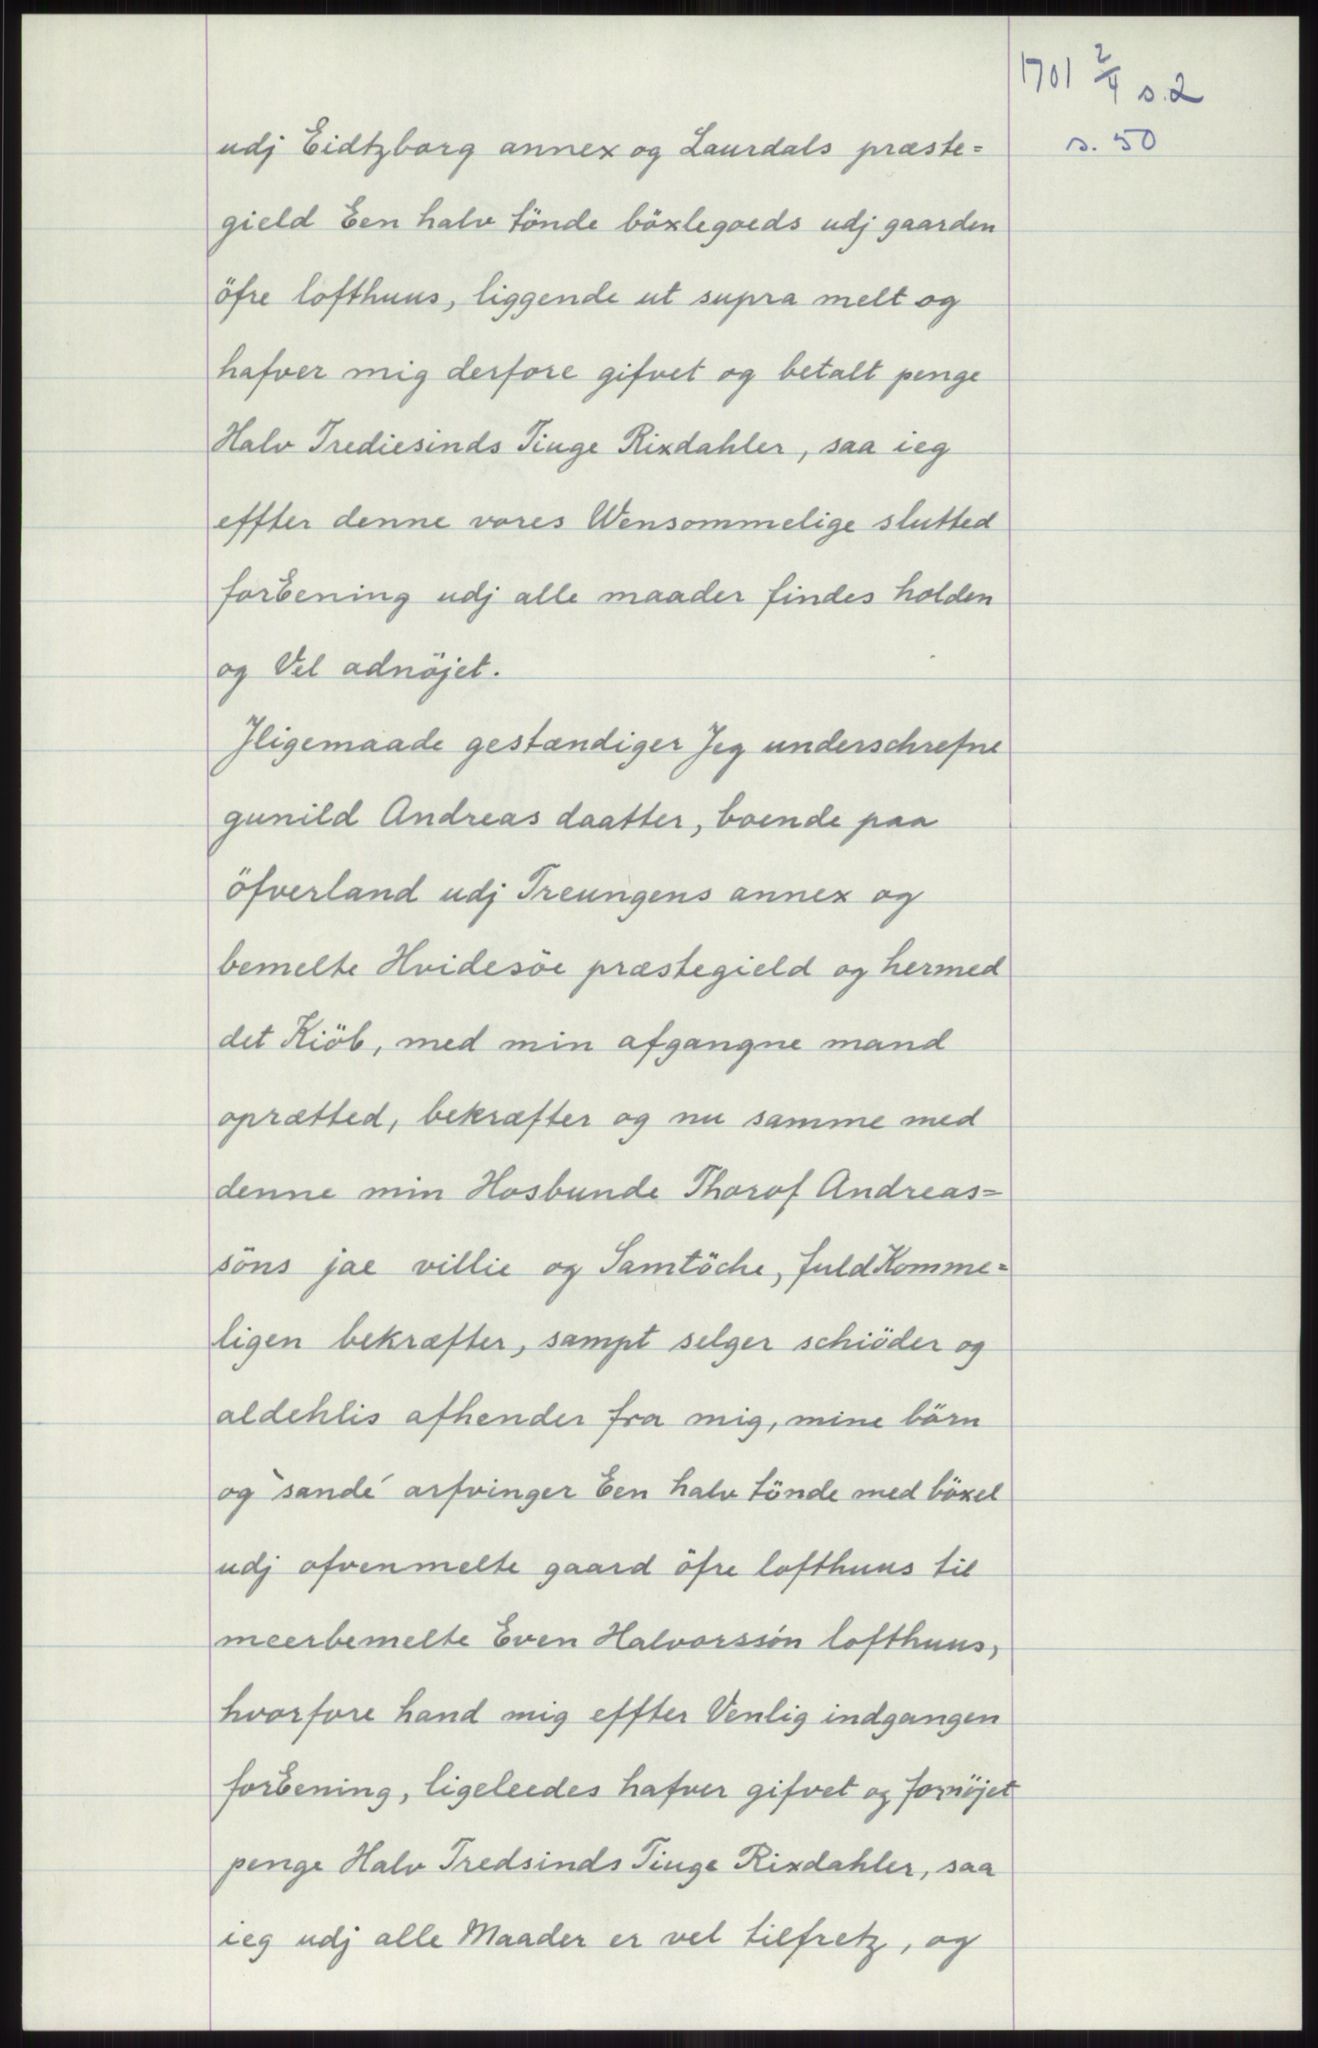 1701 2/4 s.2
s. 50
udj Eidtzborg annex og Laurdals præste=
gield Een halv tönde böxlegoeds udj gaarden
öfre lofthuus, liggende ut supra melt og
hafver mig derfore gifvet og betalt penge
Halv Trediesinds Tiuge Rixdahler, saa ieg
effter denne vores Wensommelige slutted
forEening udj alle maader findes holden
og Vel adnöjet.
Jligemaade gestændiger Jeg underschrefne
gunild Andreas daatter, boende paa
öfverland udj Treungens annex og
bemelte Hvidesöe præstegield og hermed
det Kiöb, med min afgangne mand
oprætted, bekræfter og nu samme med
denne min Hosbunde Thorof Andreas=
söns jae villie og Samtöche, fuldKomme=
ligen bekræfter, sampt selger schiöder og
aldehlis afhender fra mig, mine börn
og `sande´ arfvinger Een halv tönde med böxel
udj ofvenmelte gaard öfre lofthuus til
meerbemelte Even Halvorssön lofthuus,
hvorfore hand mig effter Venlig indgangen
forEening, ligeleedes hafver gifvet og fornöjet
penge Halv Tredsinds Tiuge Rixdahler, saa
ieg udj alle Maader er vel tilfretz, og